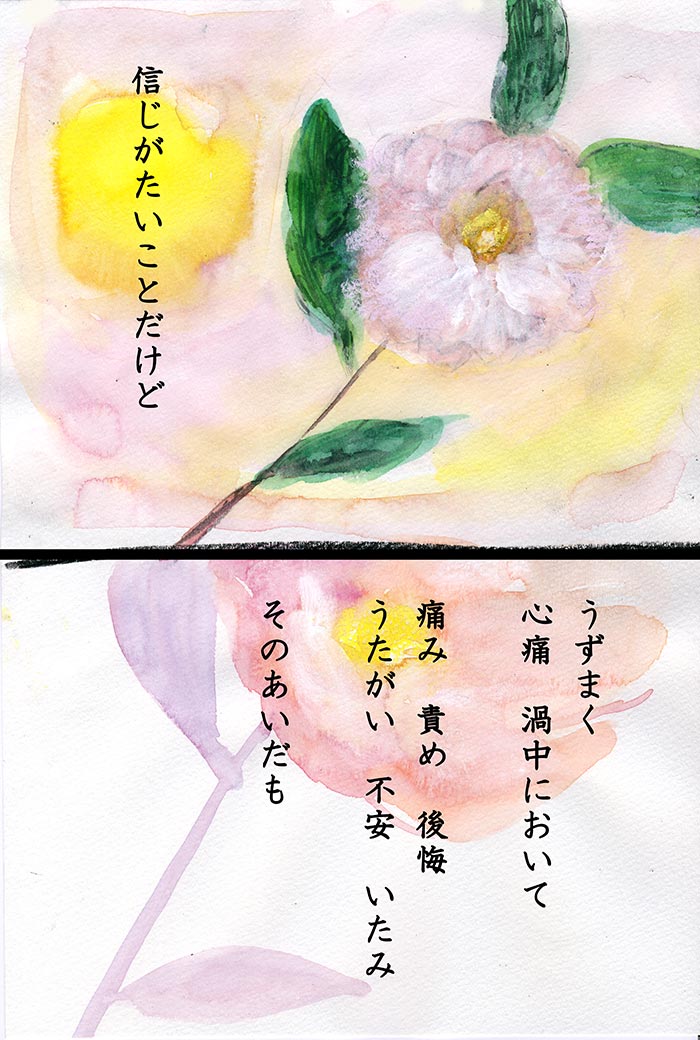 信じがたいことだけど
うずまく
心痛　渦中において
痛み　責め　後悔
うたがい　不安　いたみ
そのあいだも